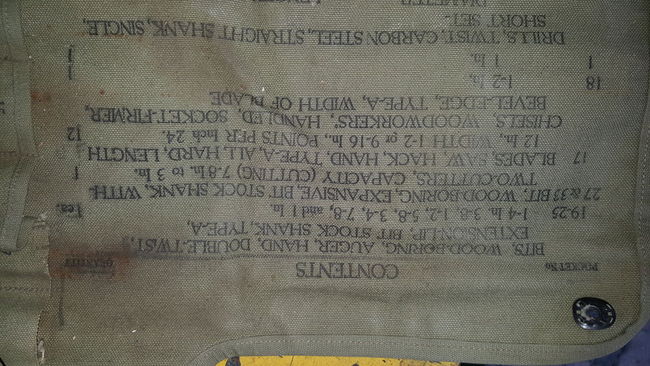 POCKET No CONTENTS QUANTITY
BITS, WOOD-BORING, AUGER, HAND, DOUBLE-TWIST,
EXTENSION-LIP, BIT STOCK SHANK, TYPE-A,
19-25 - 1-4 In. 3-8, 1-2, 5-8, 3-4, 7-8, and 1 In. 1 ea.
27 & 33 BIT, WOOD-BORING, EXPANSIVE, BIT STOCK SHANK, WITH
TWO-CUTTERS, CAPACITY (CUTTING) 7-8 In. to 3 In. 1
17 BLADES, SAW, HACK, HAND, TYPE-A, ALL HARD, LENGTH
12 In., WIDTH 1-2 or 9-16 In., POINTS PER Inch 24. 12
CHISELS, WOODWORKERS', HANDLED, SOCKET-FIRMER,
BEVEL-EDGE, TYPE-A, WIDTH OF BLADE
18 1-2 In. 1
1 1 In. 1
DRILLS, TWIST, CARBON STEEL, STRAIGHT SHANK, SINGLE,
SHORT SET.
DIAMETER